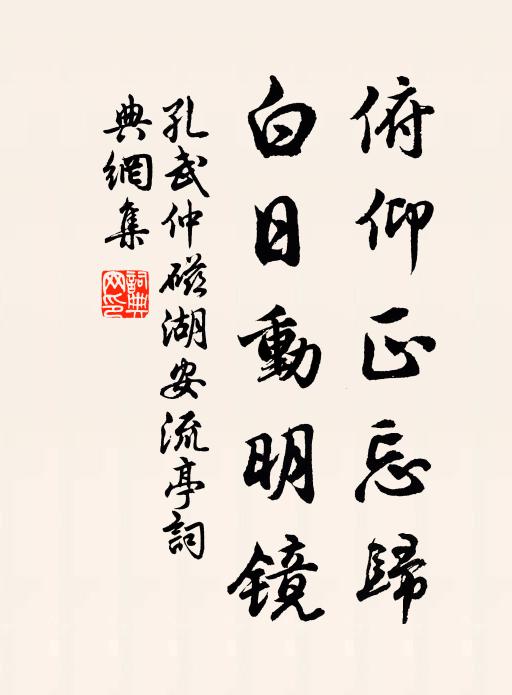 俯仰正忘歸
白日動明镜
孔武仲磁湖安流亭詞
典網集
詞典網印